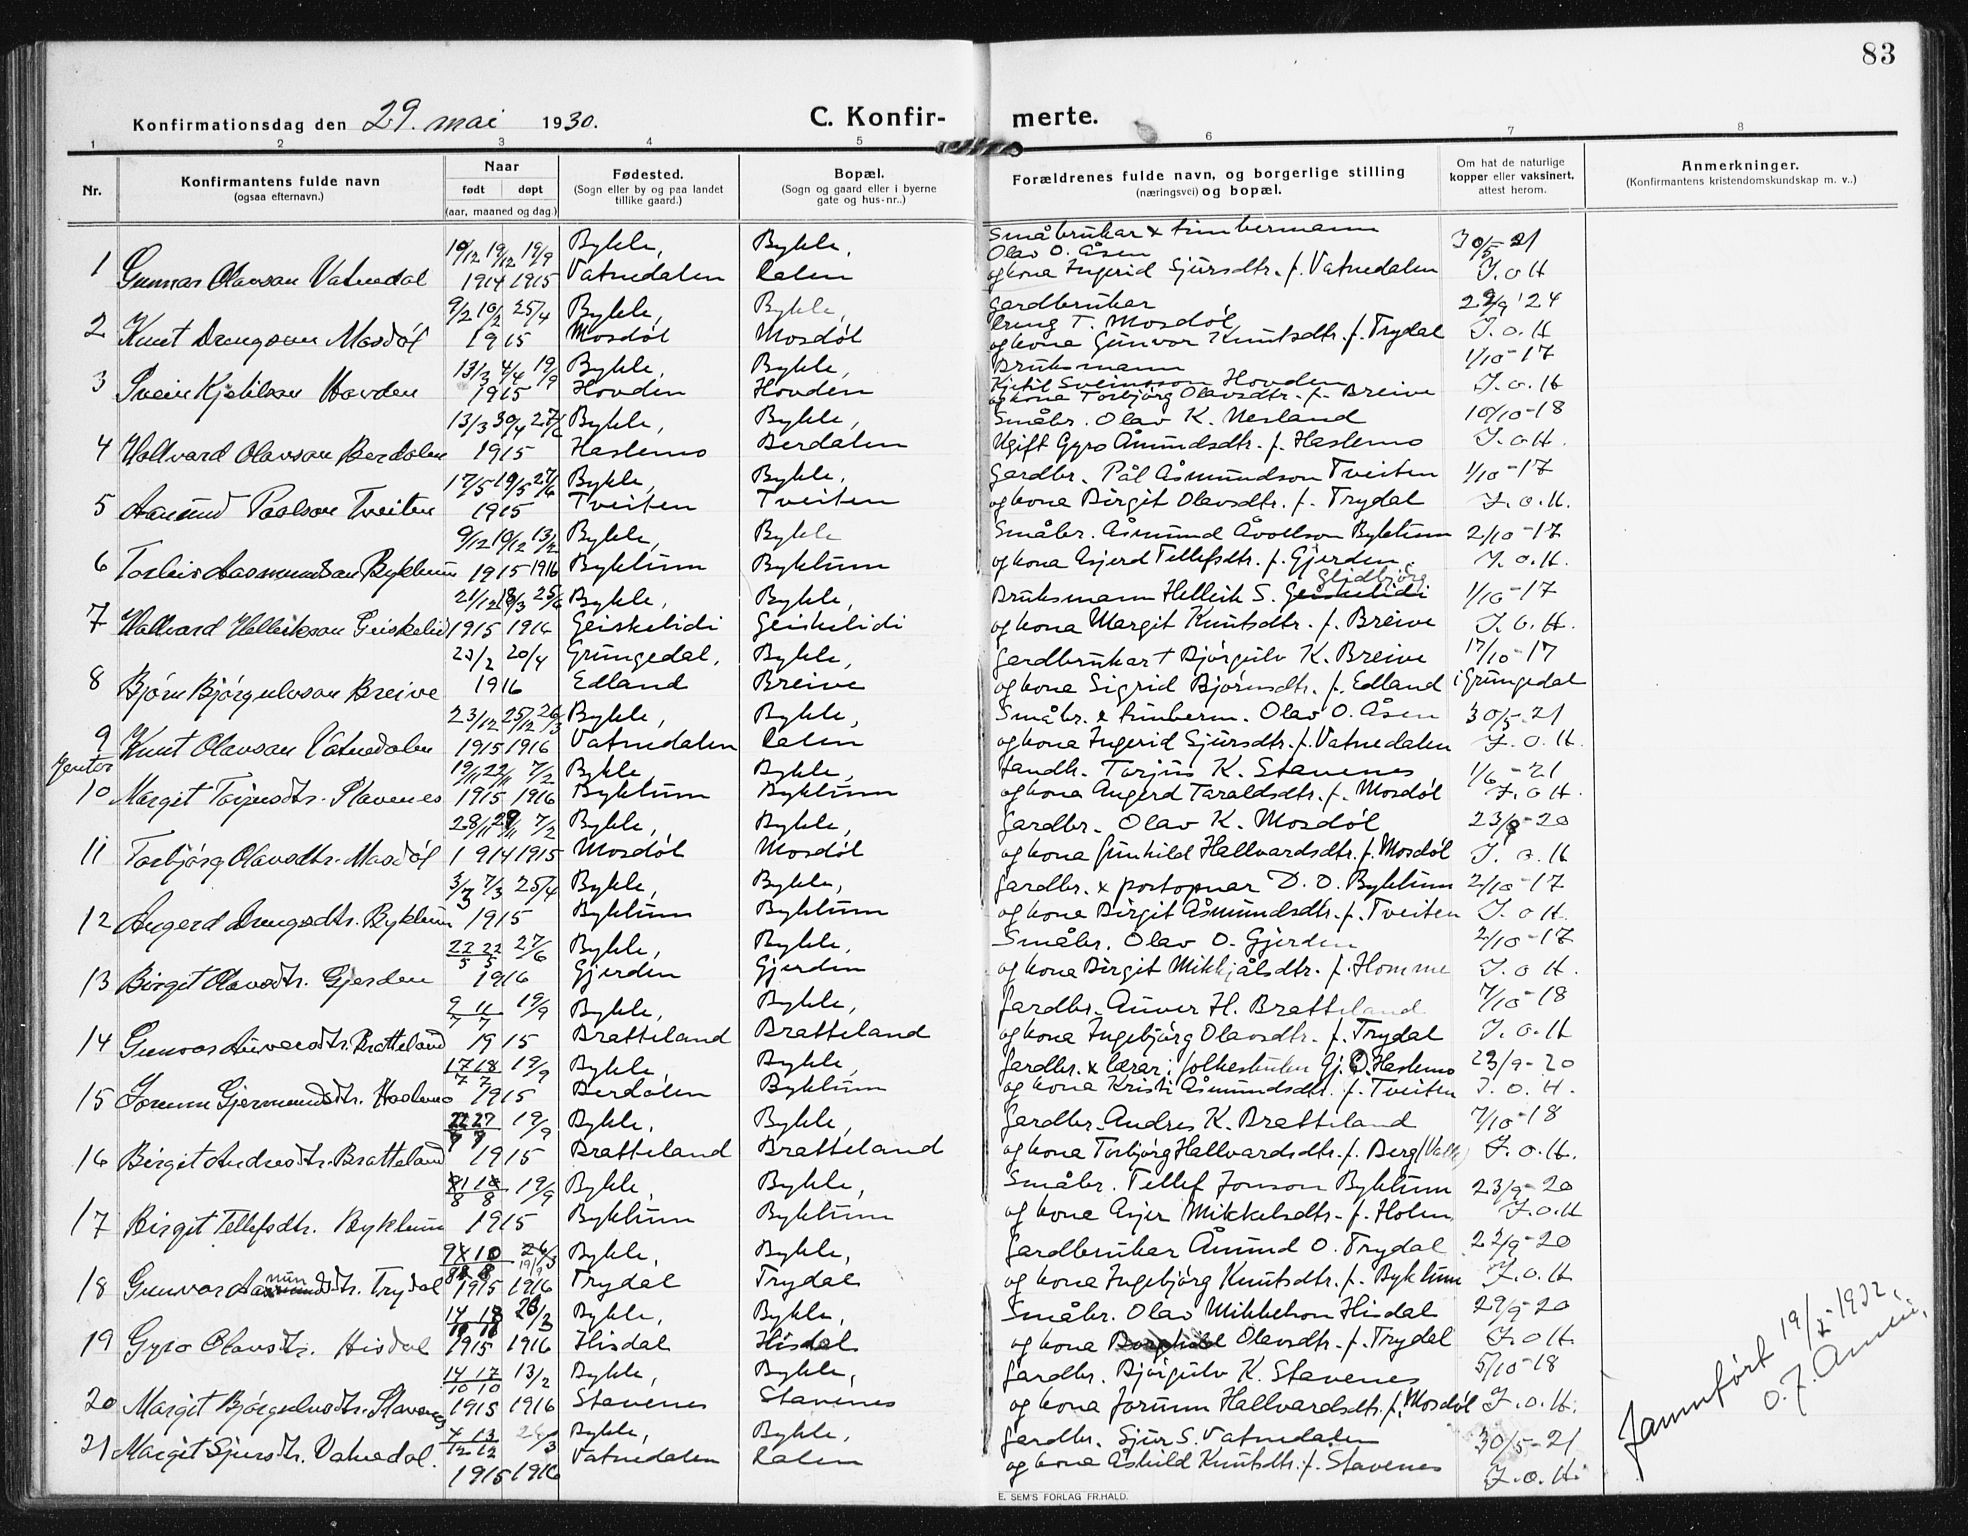 83
Konfirmationsdag den 29. mai 1930.
C. Konfirmerte.
1 2 3 4 5 6 7 8
Nr.
Konfirmantens fulde navn
(ogsaa efternavn.)
Naar
født døpt
(aar, maaned og dag.)
Fødested.
(Sogn eller by og paa landet
tillike gaard.)
Bopæl.
(Sogn og gaard eller i byerne
gate og hus-nr..)
Forældrenes fulde navn, og borgerlige stilling
(næringsvei) og bopæl.
Om hat de naturlige
kopper eller vaksinert,
attest herom.
Anmerkninger.
(Konfirmantens kristendomskundskap m. v..)
Bykle, Bykle, Småbrukar & timbermann 30/5-21
Olav O. Åsen
1 Gunnar Olavson Vatnedal 1914 1915 Vatnedalen Ralen og kona Ingerid Sjursdtr. f. Vatnedalen J.o.H
9/2 10/2 25/4 Bykle, Bykle, Gardbrukar 22/9'24
Dreng T. Mosdøl
2 Knut Drengson Mosdøl 1915 Mosdøl Mosdøl og kona Gunvor Knutsdtr. f. Trydal J.o.H
13/3 4/4 19/9 Bykle, Bykle, Bruksmann 1/10-17
Kjetil Sveinsson Hovden
3 Svein Kjetilson Hovden 1915 Hovden Hovden og kona Torbjørg Olavsdtr. f. Breive J.o.H
13/3 30/4 27/6 Bykle, Bykle, Småbr. Olav K. Nesland 10/10-18
4 Hallvard Olavson Berdalen 1915 Haslemo Berdalen Ugift Gyro Åmundsdtr. f. Haslemo J.o.H.
17/5 19/5 27/6 Bykle, Bykle, Gardbr. Pål Åsmundson Tveiten 1/10-17
5 Aasmund Paalson Tveiten 1915 Tveiten Tveiten og kona Birgit Olavsdtr. f. Trydal J.o.H.
9/12 10/12 13/2 Bykle, Bykle Småbr. Åsmund Åvollson Byklum 2/10-17
6 Torleiv Aasmundson Byklum 1915 1916 Byklum Byklum og kona Asjerd Tellefsdtr. f. Gjerden J.o.H.
21/12 18/3 25/6 Bykle, Bykle, Bruksmann Helleik S. Geiskelidi 1/10-17
7 Hallvard Helleikson Geiskelid 1915 1916 Geiskelidi Geiskelidi og kona Margit Knutsdtr. f. Breive J.o.H.
20/4 Grungedal, Bykle, Gardbrukar † Bjørgulv K. Breive 17/10-17
8 Bjørn Bjørgulvson Breive 1916 Edland Breive og kona Sigrid Bjørnsdtr. f. Edland i Grungedal
23/12 25/12 26/3 Bykle, Bykle, Småbr. & timberm. Olav O. Åsen 30/5-21
9 Knut Olavson Vatnedalen 1915 1916 Vatnedalen Ralen og kona Ingerid Sjursdtr. f. Vatnedalen J.o.H.
Jentor
19/11 22/11 7/2 Bykle Bykle, Landh. Torjus K. Stavenes 1/6-21
10 Margit Torjusdtr. Stavenes 1915 1916 Byklum Byklum og kona Angerd Taraldsdtr. f. Mosdøl J.o.H.
28/11 29/11 7/2 Bykle, Bykle, Gardbr. Olav K. Mosdøl 23/9-20
11 Torbjørg Olavsdtr. Mosdøl 1914 1915 Mosdøl Mosdøl og kona Gunhild Hallvardsdtr. f. Mosdøl J.o.H
3/3 7/3 25/4 Bykle, Bykle, Gardbr. & postopnar D. O. Byklum 2/10-17
12 Angerd Drengsdtr. Byklum 1915 Byklum Byklum og kona Birgit Åsmundsdtr. f. Tveiten J.o.H.
22/5 22/5 27/6 Bykle, Bykle, Småbr. Olav O. Gjerden 2/10-17
13 Birgit Olavsdtr. Gjerden 1916 Gjerden Gjerden og kona Birgit Mikkjålsdtr. f. Homme J.o.H.
9/7 11/7 19/9 Bykle, Bykle, Gardbr. Anver H. Bratteland 7/10-18
14 Gunvor Anversdtr. Bratteland 1915 Bratteland Bratteland og kona Ingebjørg Olavsdtr. f. Trydal J.o.H
17/7 18/7 19/9 Bykle, Bykle, Gardbr. & lærar i folkeskulen Gj. O. Haslemo 23/9-20
15 Jorunn Gjermundsdtr. Haslemo 1915 Berdalen Byklum og kona Kristi Åsmundsdtr. f. Tveiten J.o.H.
19/9 Bykle, Bykle, Gardbr. Andres K. Bratteland 7/10-18
16 Birgit Andresdtr. Bratteland 1915 Bratteland Bratteland og kona Torbjørg Hallvardsdtr. f. Berg (Valle) J.o.H.
19/9 Bykle, Bykle, Småbr. Tellef Jonson Byklum 23/9-20
17 Birgit Tellefsdtr. Byklum 1915 Byklum Byklum og kona Asjer Mikkelsdtr. f. Holen J.o.H
26/3 Bykle, Bykle, Gardbrukar Åmund O. Trydal 22/9-20
18 Gunvor Aamundsdtr. Trydal 1915 1916 Trydal Trydal og kona Ingebjørg Knutsdtr. f. Byklum J.o.H
Bykle, Bykle, Småbr. Olav Mikkelson Hisdal 29/9-20
19 Gyro Olavsdtr. Hisdal 1915 1916 Hisdal Hisdal og kona Olavsdtr. f. Trydal J.o.H.
14/10 17/10 13/2 Bykle, Bykle, Gardbr. Bjørgulv K. Stavenes 5/10-18
20 Margit Bjørgulvsdtr. Stavenes 1915 1916 Stavenes Stavenes og kona Jorunn Hallvardsdtr. f. Mosdøl J.o.H.
Bykle, Bykle, Gardbr. Sjur S. Vatnedalen 30/5-21
21 Margit Sjursdtr. Vatnedal. 1915 1916 Vatnedalen Ralen og kona Åshild Knutsdtr. f. Stavenes J.o.H.
Jamnført 19/I-1932,
E. SEM'S FORLAG FR.HALD.